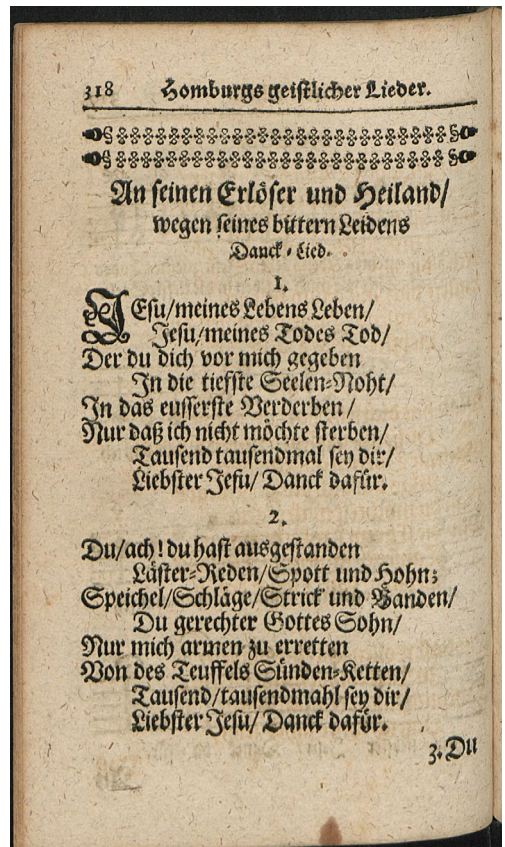 318 Homburgs geistlicher Lieder.
An seinen Erlöser und Heiland/
wegen seines bittern Leidens
Danck-Lied.
1.
JEsu/meines Lebens Leben/
Jesu/meines Todes Tod/
Der du dich vor mich gegeben
In die tieffste Seelen-Noht/
In das eusserste Verderben/
Nur daß ich nicht möchte sterben/
Tausend tausendmal sey dir/
Liebster Jesu/ Danck dafür.
2.
Du/ach! du hast ausgestanden
Läster-Reden/Spott und Hohn;
Speichel/Schläge/Strick und Banden/
Du gerechter Gottes Sohn/
Nur mich armen zu erretten
Von des Teuffels Sünden-Ketten/
Tausend/tausendmahl sey dir/
Liebster Jesu/ Danck dafür.
3. Du